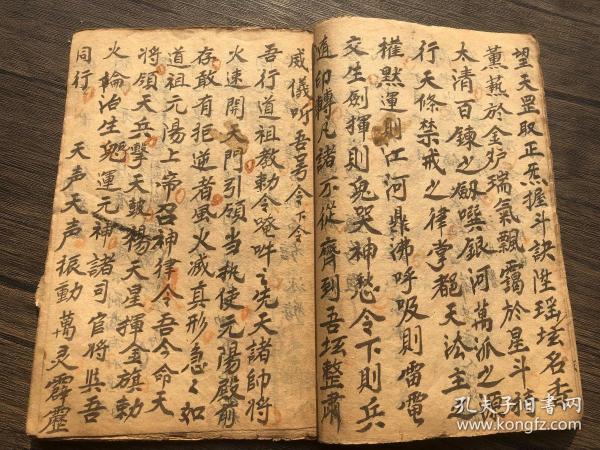 望天罡取正炁握斗訣性瑶坛名香
薰爇於金炉瑞氣飄靄於星斗
太清百鍊之劔噀銀河萬派之源
行天條禁戒之律掌都天法主之
權默運則江河鼎沸呼吸則雷電
交生劍揮則鬼哭神愁令下則兵
随印轉凡諸不從齊到吾坛整肃
威儀听吾号令下令
吾行道祖教勅令唵吽乀先天諸帥将
火速開天門引領当執使元陽殿前
存敢有拒逆者風火滅真形急乀如
道祖元陽上帝召神律令吾今命天
将領天兵擊天鼓楊天星揮金旗勅
火輪治生兜運元神諸司官将與吾
同行 天声天声振動萬灵霹靂
孔夫子旧书网
www.kongfz.com